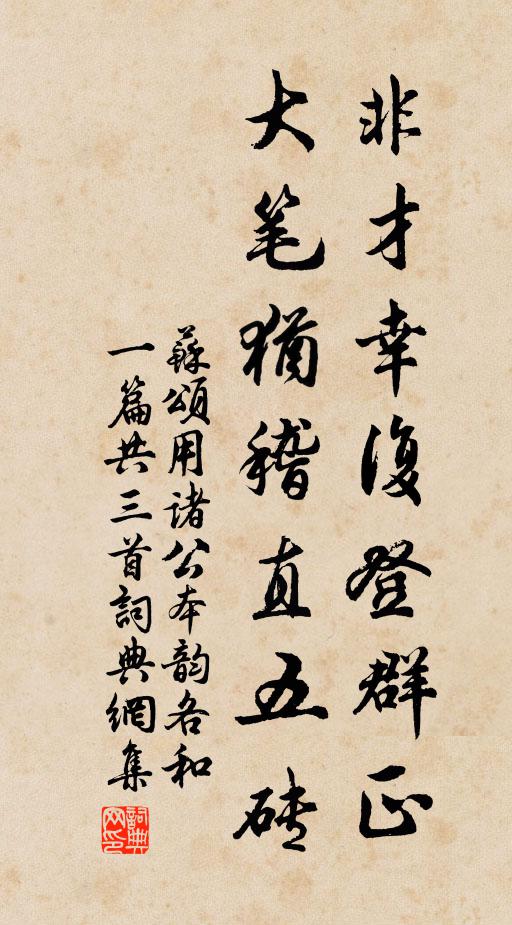 非才幸復登群正
大笔猶稽直五磚
蘇頌用諸公本韵各和
一篇共三首詞典網集
詞典
网印